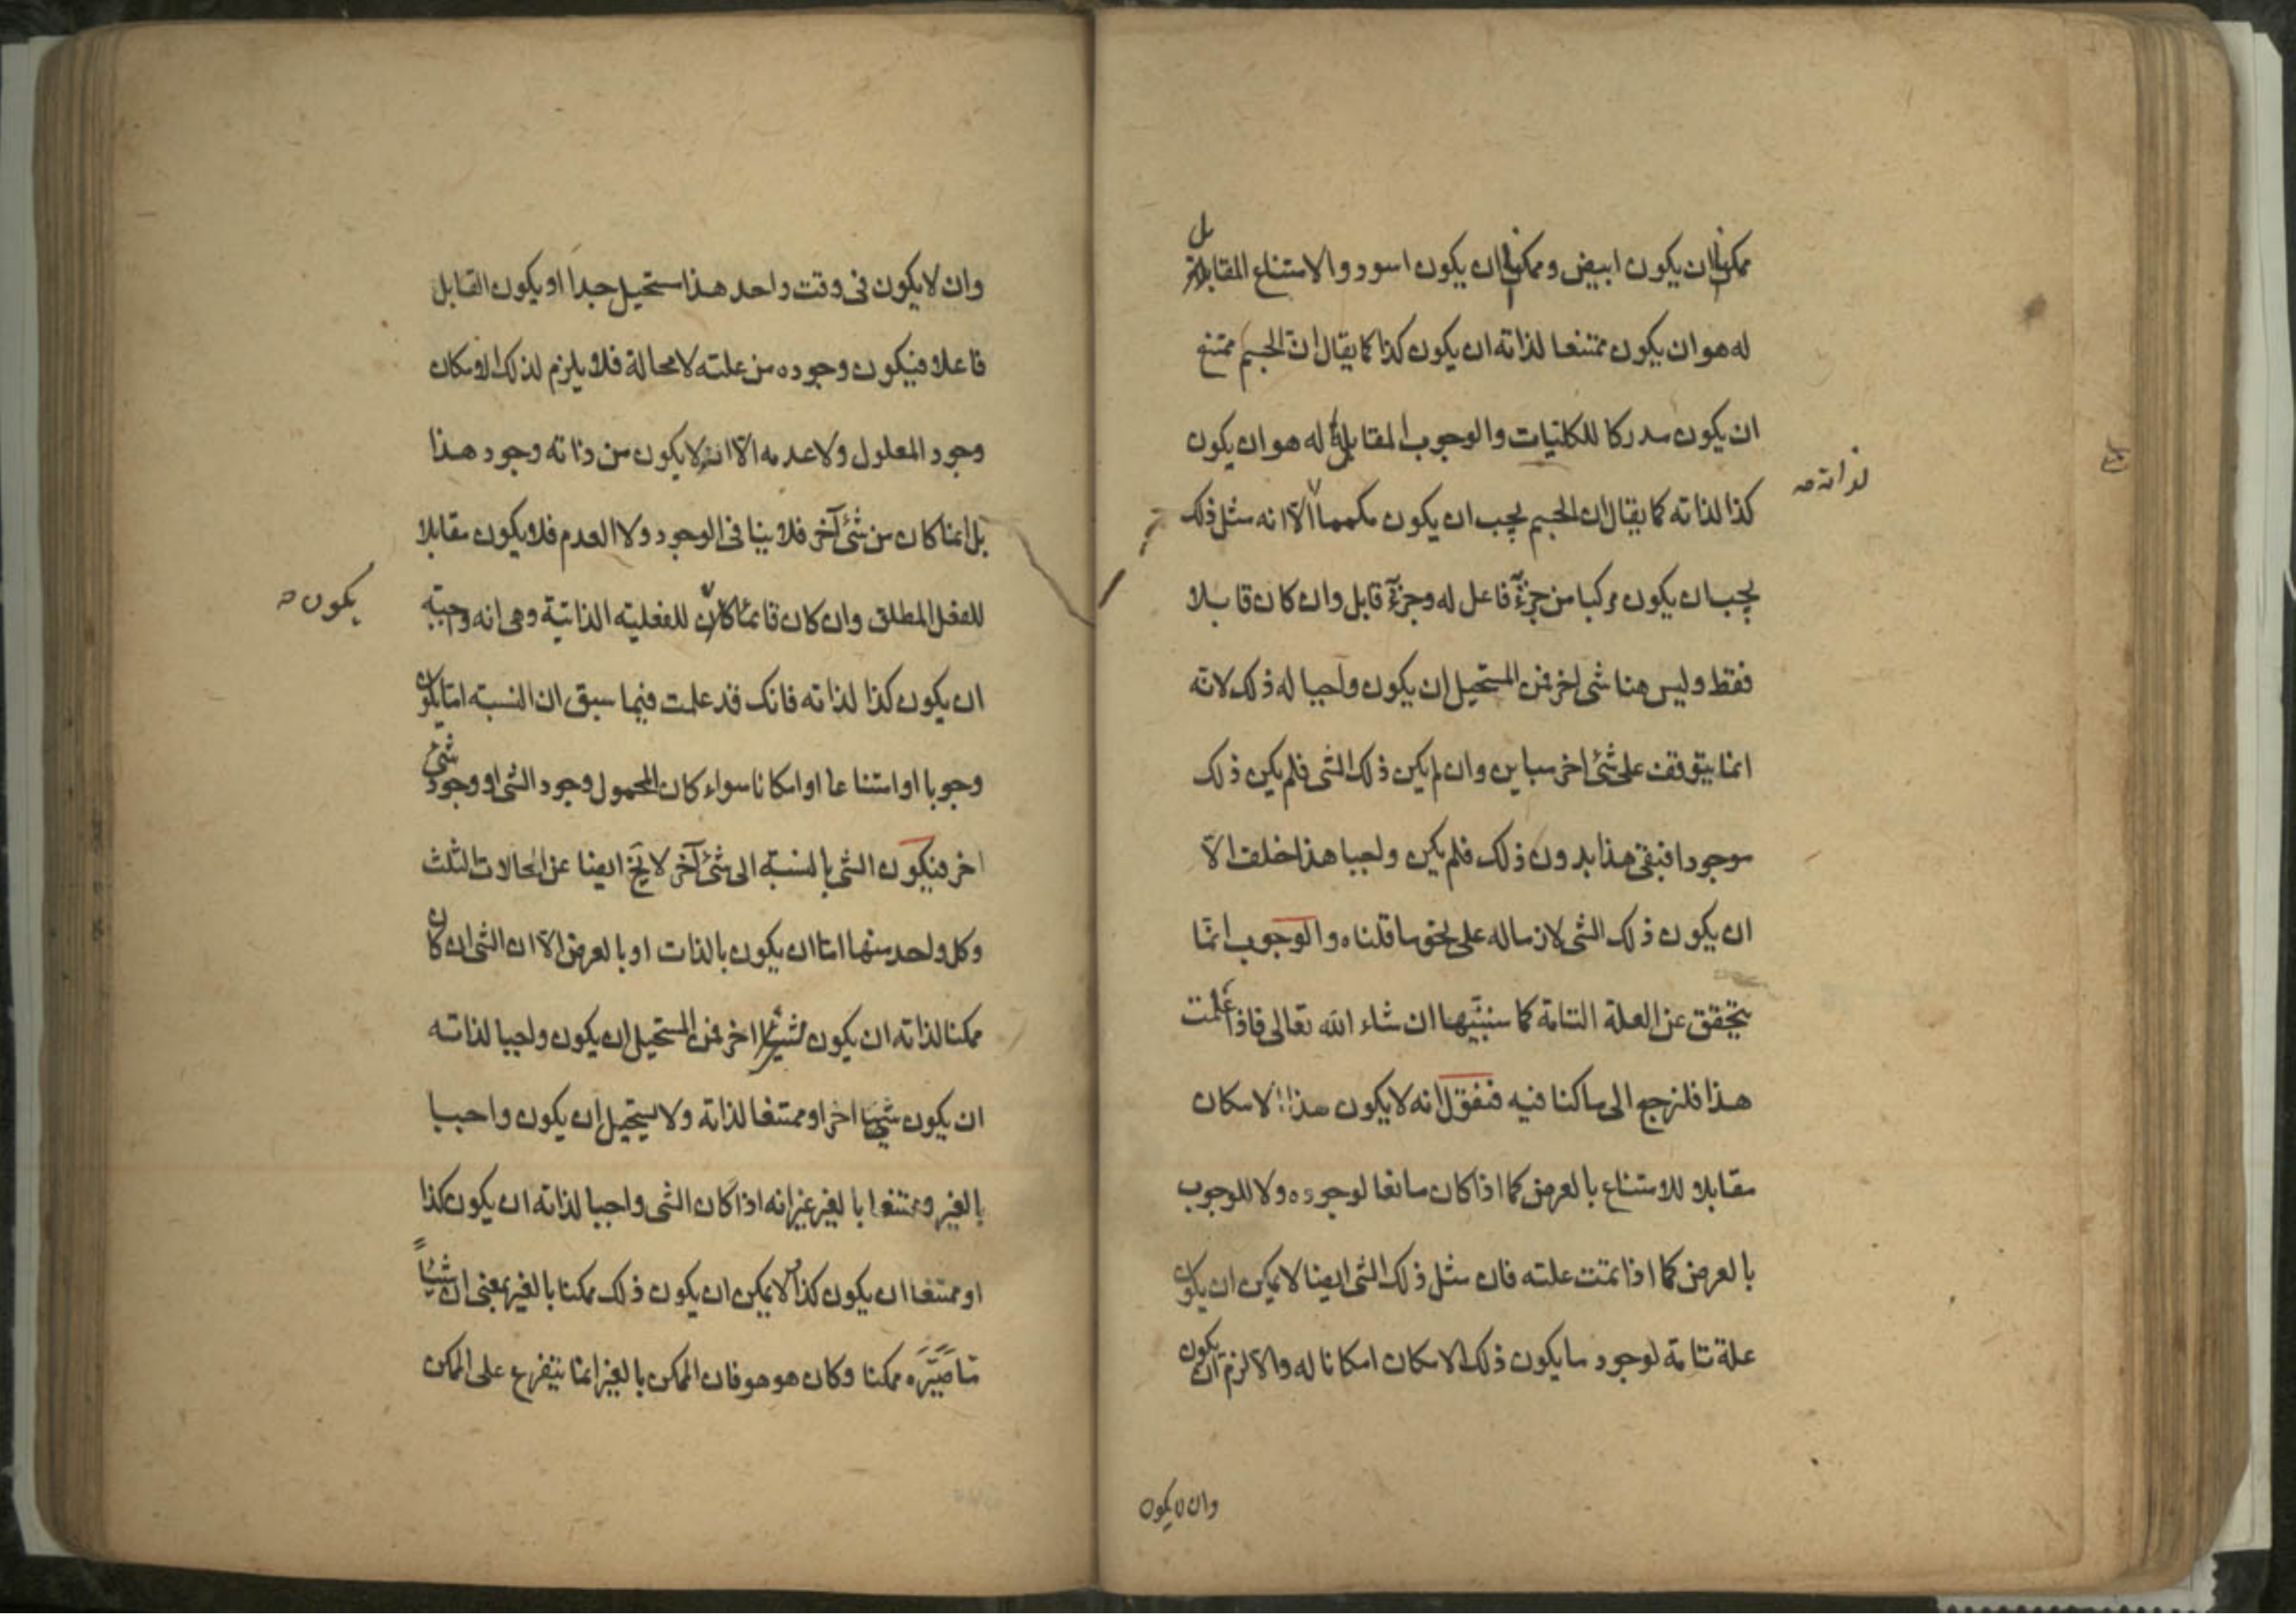 ممكن ان يكون ابيض وممكن ان يكون اسود والامتناع المقابل
له هو ان يكون ممتنعا لذاته ان يكون كذا كما يقال ان الجسم ممتنع
ان يكون مدركا للكليات والوجوب المقابل له هو ان يكون
كذا لذاته كما يقال ان الجسم يجب ان يكون الا انه مثل ذلك
لذاته صه
يجب ان يكون مركبا من جزء فاعل له وجزء قابل وان كان قابلا
فقط وليس هنا شى اخر فمن المستحيل ان يكون واجبا له ذلك لانه
انما يتوقف على شئ اخر مباين وان لم يكن ذلك الشى فلم يكن ذلك
موجودا فبقى هذا بدون ذلك فلم يكن واجبا هذا خلف الا
ان يكون ذلك الشى لازما له على نحو ما قلناه والوجوب انما
يتحقق عن العلة التامة كما سنبينها ان شاء الله تعالى فاذا علمت
هذا فلنرجع الى ما كنا فيه فنقول انه لا يكون هذا الامكان
مقابلا للامتناع بالعرض كما اذا كان مانعا لوجوده ولا للوجوب
بالعرض كما اذا تمت علته فان مثل ذلك الشى ايضا لا يمكن ان يكون
علة تامة لوجود ما يكون ذلك الامكان امكانا له والا لزم ان يكون
وان لا يكون
وان لا يكون فى وقت واحد هذا مستحيل جدا او يكون القابل
فاعلا فيكون وجوده من علته لا محالة فلا يلزم لذلك الامكان
وجود المعلول ولا عدمه الا انه لا يكون من ذاته وجود هذا
بل انما كان من شئ آخر فلا ينافى الوجود ولا العدم فلا يكون مقابلا
للفعل المطلق وان كان قائما كان للفعلية الذاتية وهى انه
يكون صه
ان يكون كذا لذاته فانك قد علمت فيما سبق ان النسبة اما يكون
وجوبا او امتناعا او امكانا سواء كان المحمول وجود الشى او وجود شئ
اخر فيكون الشى بالنسبة الى شئ آخر لا يخ ايضا عن الحالات الثلث
وكل واحد منها اما ان يكون بالذات او بالعرض الا ان الشى ان كان
ممكنا لذاته ان يكون شيئا اخر فمن المستحيل ان يكون واجبا لذاته
ان يكون شيئا اخر او ممتنعا لذاته ولا يستحيل ان يكون واجبا
بالغير وممتنعا بالغير غير انه اذا كان الشى واجبا لذاته ان يكون كذا
او ممتنعا ان يكون كذا لا يمكن ان يكون ذلك ممكنا بالغير بمعنى ان شيئا
ما صيّره ممكنا وكان هو هو فان الممكن بالغير انما يتفرع على الممكن